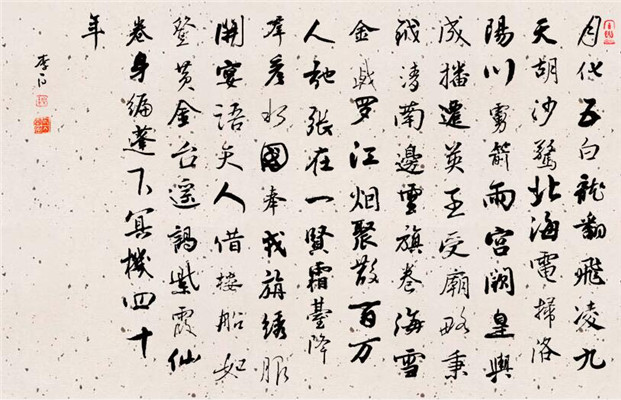 月化五白龍翻飛凌九
天胡沙驚北海電掃洛
陽川虜箭雨宮闕皇輿
成播遷英王受廟略秉
鉞清南邊雲旗卷海雪
金戟罗江烟聚散百万
人弛張在一賢霜臺降
群彦水國奉戎旃綉服
開宴語天人借楼船如
登黄金台遥謁紫霞仙
卷身編蓬下冥機四十
年
李白